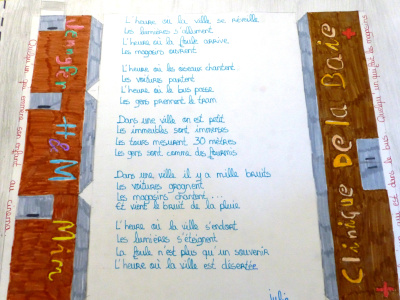 L'heure où la ville se réveille
Les lumières s'allument
L'heure où la foule arrive
Les magasins ouvrent
L'heure où les oiseaux chantent
Les voitures partent
L'heure où le bus passe
Les gens prennent le tram
Dans une ville on est petit
Les immeubles sont immenses
Les tours mesurent 30 mètres
Les gens sont comme des fourmis
Dans une ville il y a mille bruits
Les voitures grognent
Les magasins chantent....
Et vient le bruit de la pluie
L'heure où la ville s'endort
Les lumières s'éteignent
La foule n'est plus qu'un souvenir
L'heure où la ville est désertée
julie
Jennyfer H&M Mim
Clinique De la Baie
au cinéma
est dans le bus